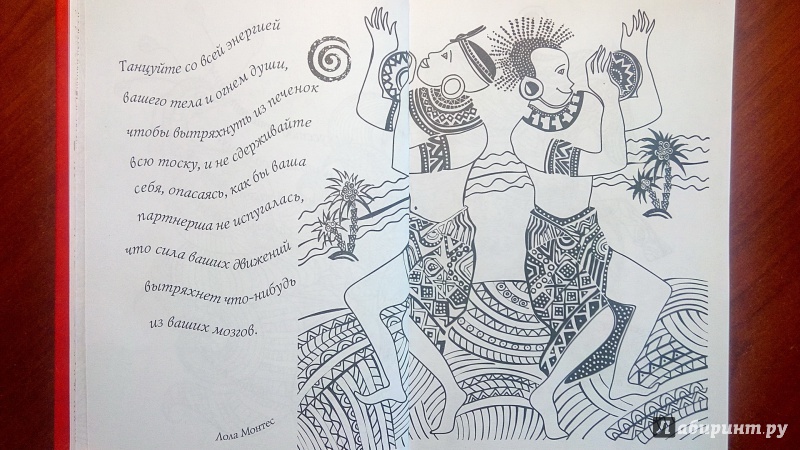 Танцуйте со всей энергией
вашего тела и огнем души,
чтобы вытряхнуть из печенок
всю тоску, и не сдерживайте
себя, опасаясь, как бы ваша
партнерша не испугалась,
что сила ваших движений
вытряхнет что-нибудь
из ваших мозгов.
Лола Монтес
Лабиринт.ру